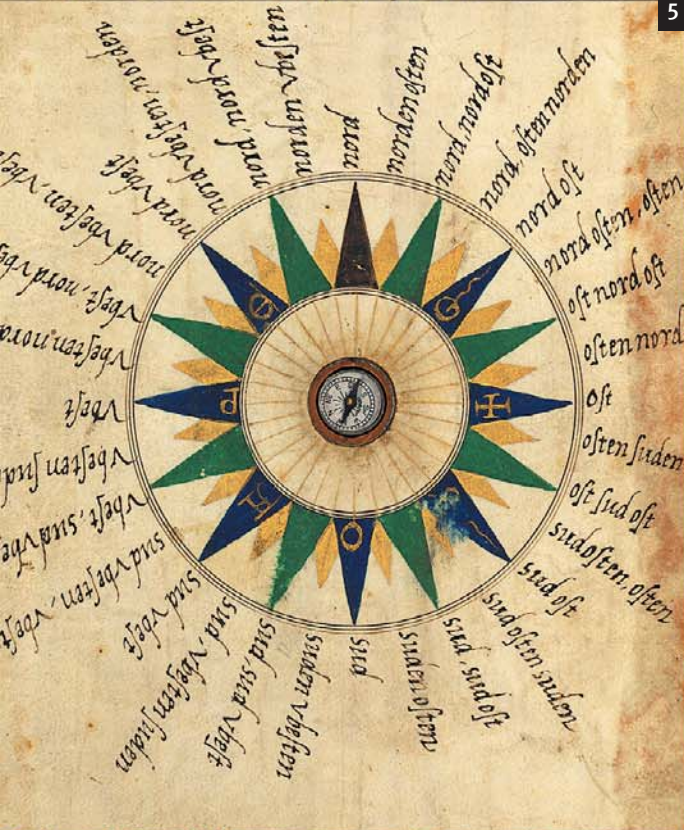 5
nord
norden oſten
nord, nord oſt
nord, oſten norden
nord oſt
nord oſten, oſten
oſt nord oſt
oſten nord
Oſt
oſten ſuden
oſt ſud oſt
sudoſten, oſten
sud oſt
sud oſten suden
sud, sud oſt
suden oſten
sud
suden vbeſten
sud, sud vbeſt
sud, vbeſten ſuden
sud vbeſt
sud vbeſten, vbeſt
vbeſt, sud vbeſ
vbeſten ſud
vbeſt
vbeſten nord
vbeſt, nord vbeſ
nord vbeſten, vbeſt
nord vbeſt
nord vbeſten, norden
nord, nord vbeſt
norden vbeſten